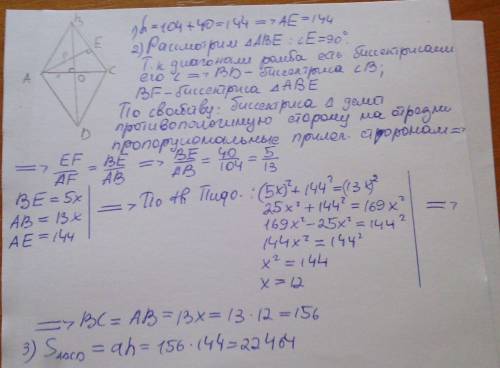 B
E
F
A
O
C
D
1) h = 104 + 40 = 144 => AE = 144
2) Рассмотрим △ABE : ∠E = 90°.
Т.к диагонали ромба есть биссектрисами
его ∠ => BD - биссектриса ∠B;
BF - биссектриса △ABE
По свойству: биссектриса △ делит
противоположную сторону на отрезки
пропорциональные прилег. сторонам =>
=> EF/AF = BE/AB => BE/AB = 40/104 = 5/13
BE = 5x
AB = 13x
AE = 144
=> По тв Пифо.: (5x)² + 144² = (13x)²
25x² + 144² = 169x²
169x² - 25x² = 144²
144x² = 144²
x² = 144
x = 12
=>
=> BC = AB = 13x = 13 · 12 = 156
3) S ABCD = ah = 156 · 144 = 22464